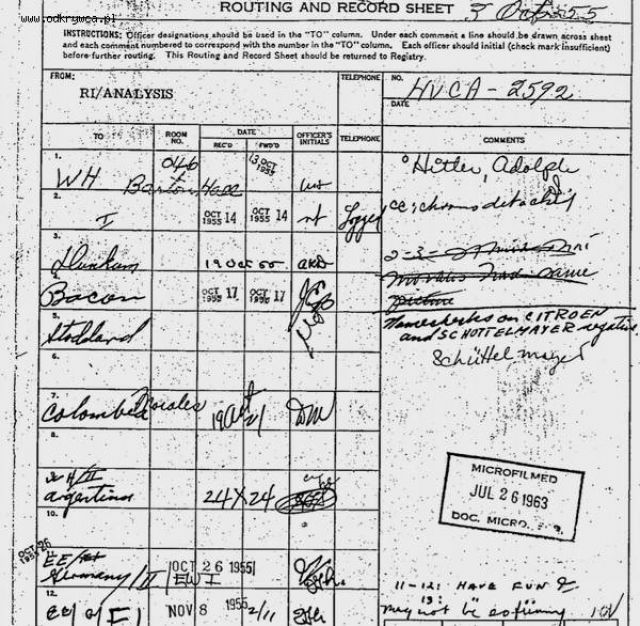 www.odkrywca.pl
ROUTING AND RECORD SHEET
3 Oct 55
INSTRUCTIONS: Officer designations should be used in the "TO" column. Under each comment a line should be drawn across sheet
and each comment numbered to correspond with the number in the "TO" column. Each officer should initial (check mark insufficient)
before further routing. This Routing and Record Sheet should be returned to Registry.
FROM:
RI/ANALYSIS
TELEPHONE
NO.
HVCA-2592
DATE
TO
ROOM NO.
DATE
REC'D
FWD'D
OFFICER'S INITIALS
TELEPHONE
COMMENTS
1.
WH
Barton Hall
13 OCT 1955
Hitler, Adolph
2.
I
OCT 14 1955
OCT 14 1955
Logged
3.
Dunham
19 Oct 55
4.
Bacon
OCT 17 1955
OCT 17 1955
Namechecks on CITROEN
and SCHOTTELMAYER negative
5.
Stoddard
Schüttelmayer
6.
7.
Colombia
DM
8.
WH/III
Argentina
24 X 24
10.
MICROFILMED
JUL 26 1963
DOC. MICRO. SER.
OCT 26 1955
EE/
Germany/II
OCT 26 1955
11-12: HAVE FUN
12.
NOV 8 1955
2/11
may not be